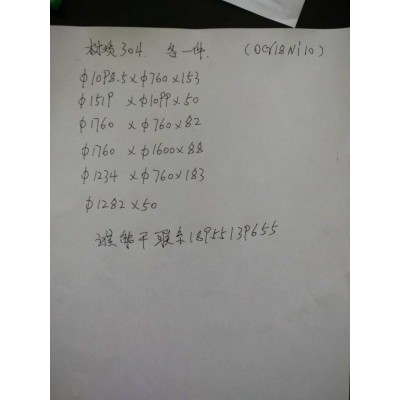 材质304. 各一件. (0Cr18Ni10)
φ1098.5×φ760×153
φ1519 ×φ1099×50
φ1760 ×φ760×82
φ1760 ×φ1600×88
φ1234 ×φ760×183
φ1282×50
谁能干联系18955139655